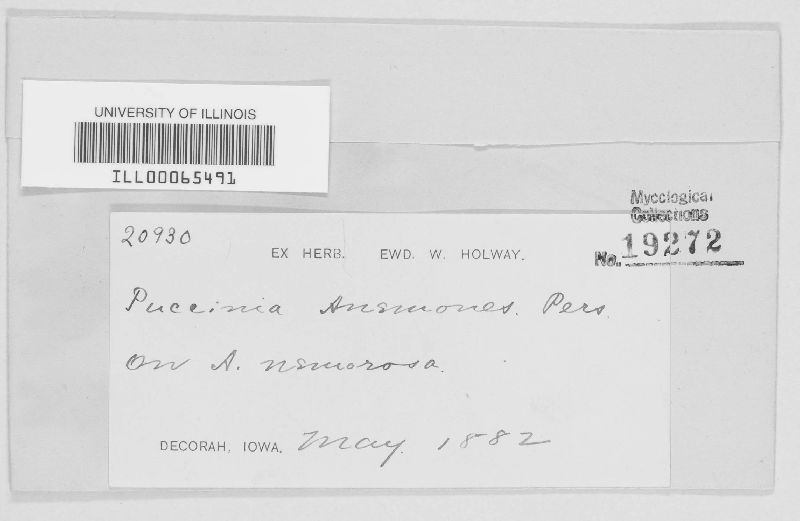 UNIVERSITY OF ILLINOIS
ILL00065491
Mycological
Collections
No. 19272
20930
EX HERB. EWD. W. HOLWAY.
Puccinia Anemones. Pers.
On A. nemorosa.
DECORAH, IOWA. May. 1882